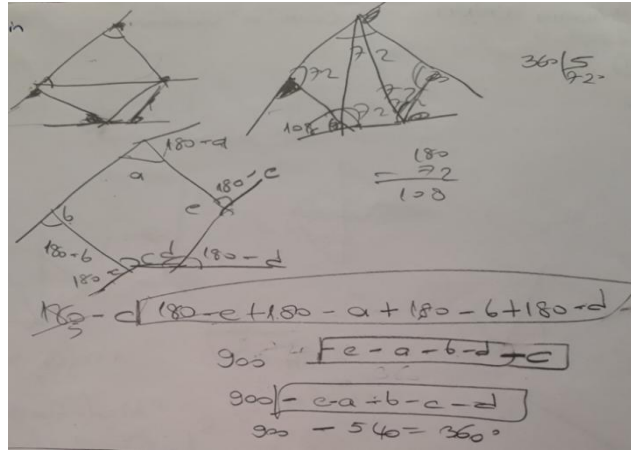 in
360 5
72°
72
72
108
72
72
72
180
- 72
108
180-a
a
180-e
e
b
180-b
c d
180-d
180-c
180-c 180-e+180-a+180-b+180-d
900 -e-a-b-d-c
900 -e-a-b-c-d
900 - 540 = 360°